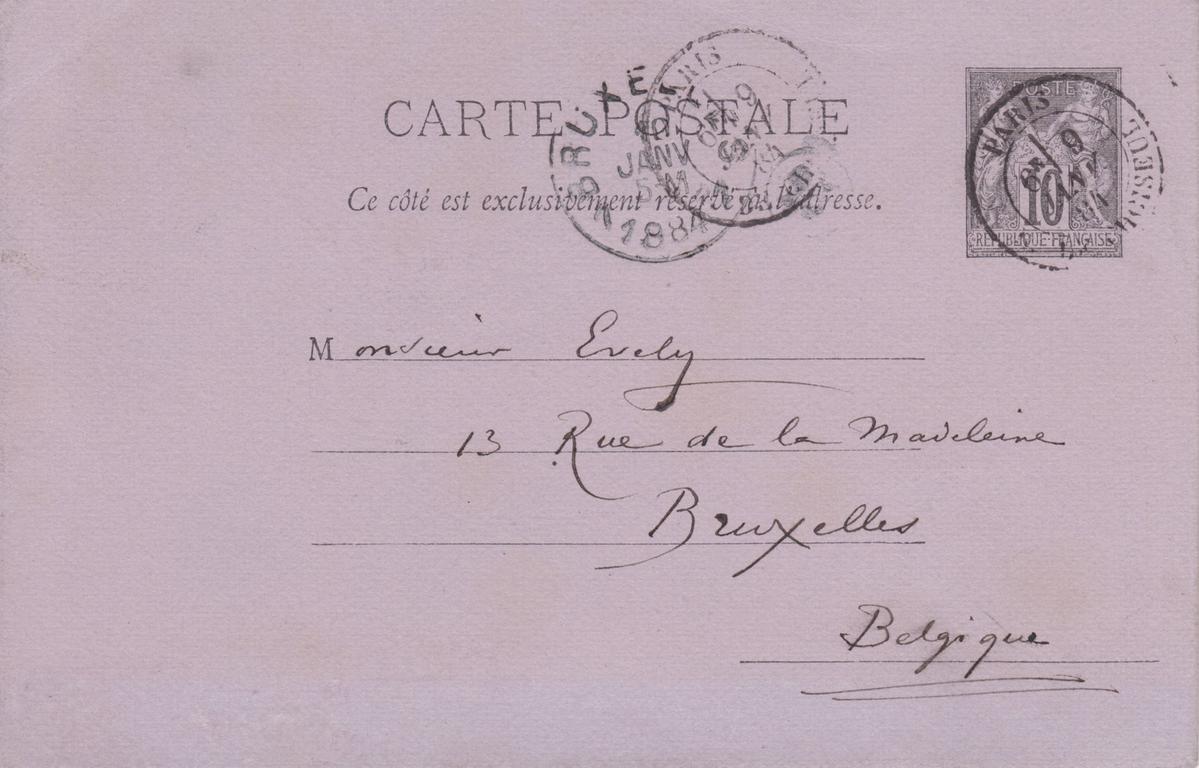 CARTE POSTALE
Ce côté est exclusivement réservé à l'adresse.
POSTES
10
REPUBLIQUE FRANÇAISE
PARIS
9
JANV
84
PARIS
9
JANV
5 M
1884
Monsieur Evely
13 Rue de la Madeleine
Bruxelles
Belgique